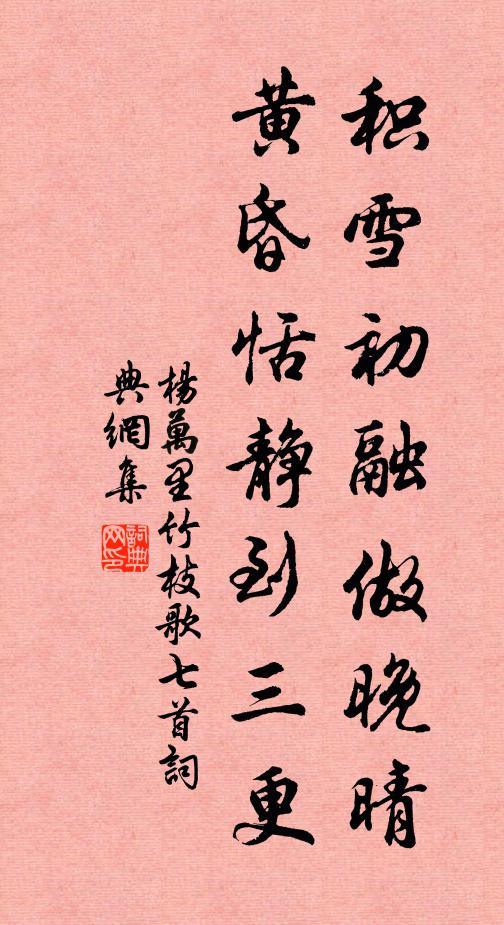 积雪初融做晚晴
黄昏恬静到三更
楊萬里竹枝歌七首詞
典網集
詞典
网印